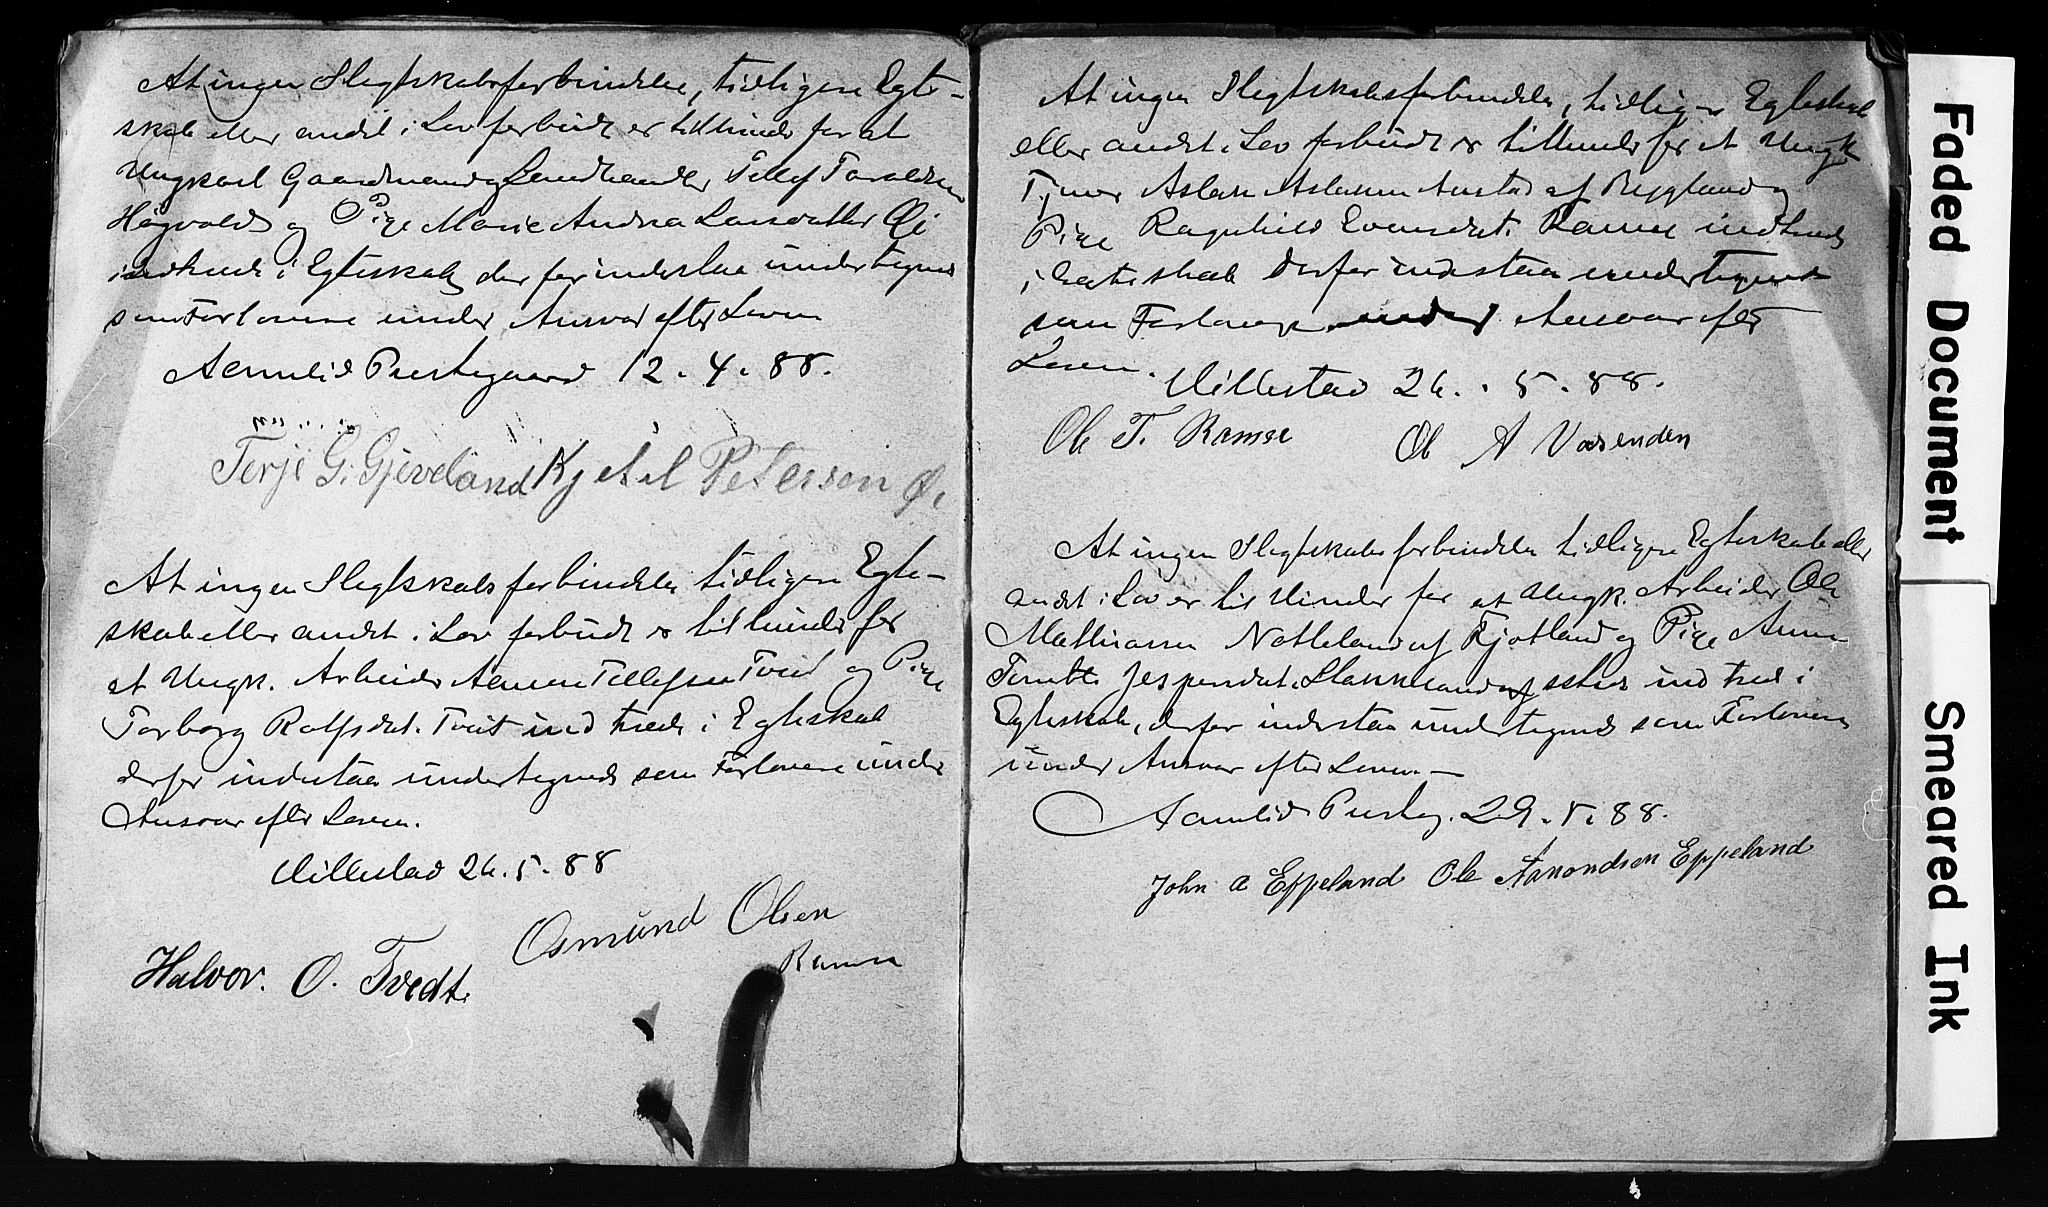 At ingen Slegtskabsforbindelse, tidligere Egte-
skab eller andet i Lov forbudt er til Hinder for at
Ungkarl Gaardmand og Landhandler Tellef Taraldsen
Høgvold og Pige Marie Andrea Larsdatter Øi
indtrede i Egteskab, derfor indestaa undertegnede
som Forlovere under Ansvar efter Loven
Aamlid Prestegaard 12. 4. 88.
Terje G. Gjeveland Kjetil Petersen Øi
At ingen Slegtskabsforbindelse tidligere Egte-
skab eller andet i Lov forbudt er til hinder for
at Ungk. Arbeider Aanen Tellefsen Tveit og Pige
Torborg Rolfsdat. Tveit indtrede i Egteskab
derfor indestaa undertegnede som Forlovere under
Ansvar efter Loven.
Millestad 26. 5. 88
Osmund Olsen
Halvor. O. Tvedt.
Ramse
At ingen Slegtskabsforbindelse, tidligere Egteskab
eller andet i Lov forbudt er til hinder for at Ungk
Tjener Aslak Aslaksen Austad af Bygland og
Pige Ragnhild Evensdat. Ramse indtrede
i Egteskab derfor indestaa undertegnede
som Forlovere under Ansvar efter
Loven.
Millestad 26. 5. 88.
Ole T. Ramse Ole A Vasenden
At ingen Slegtskabsforbindelse tidligere Egteskab eller
andet i Lov er til Hinder for at Ungk. Arbeider Ole
Mathiassen Netteland af Fjotland og Pige Anne
Jespersdat. indtrede i
Egteskab, derfor indestaa undertegnede som Forlovere
under Ansvar efter Loven. —
Aamlid Presteg. 29. 5. 88.
John A Eppeland Ole Aanondsen Eppeland
Faded Document
Smeared Ink